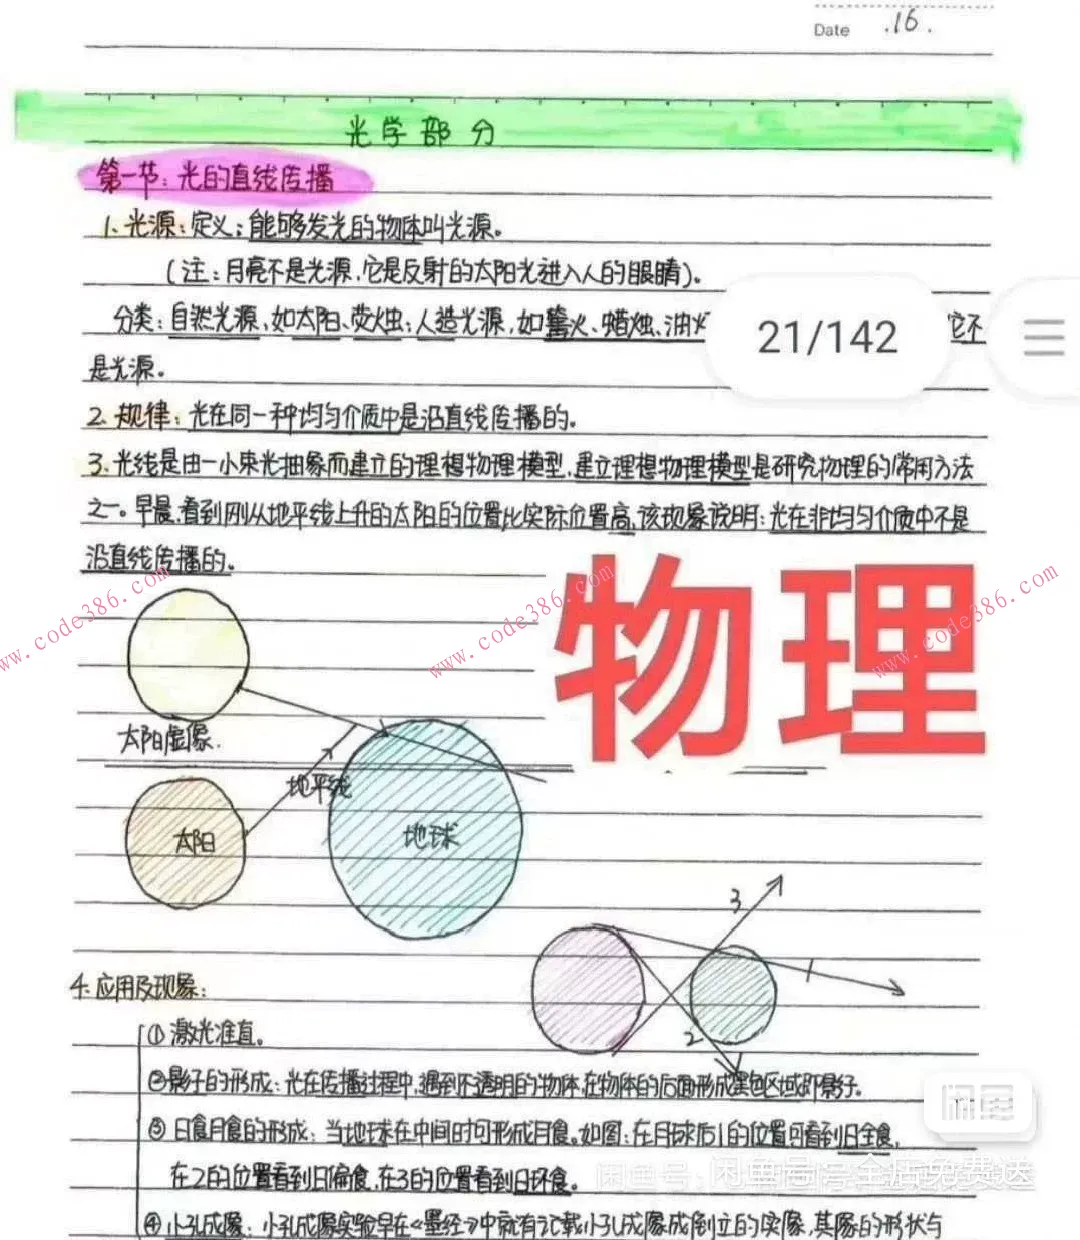 Date .16.
光学部分
第一节:光的直线传播
1.光源:定义:能够发光的物体叫光源。
(注:月亮不是光源,它是反射的太阳光进入人的眼睛)。
分类:自然光源,如太阳、萤火虫;人造光源,如篝火、蜡烛、油灯
它不
21/142
是光源。
2.规律:光在同一种均匀介质中是沿直线传播的。
3.光线是由一小束光抽象而建立的理想物理模型,建立理想物理模型是研究物理的常用方法
之一。早晨,看到刚从地平线上升的太阳的位置比实际位置高,该现象说明:光在非均匀介质中不是
沿直线传播的。
物理
www.code386.com
www.code386.com
www.code386.com
太阳虚像.
地平线
太阳
地球
3
1
2
4.应用及现象:
①激光准直。
②影子的形成:光在传播过程中,遇到不透明的物体,在物体的后面形成黑色区域即影子。
闲鱼
③日食月食的形成:当地球在中间时可形成月食。如图:在月球后1的位置可看到日全食,
在2的位置看到日偏食,在3的位置看到日环食。
闲鱼号:闲鱼号
全店免费送
④小孔成像:小孔成像实验早在《墨经》中就有记载小孔成像成倒立的实像,其像的形状与